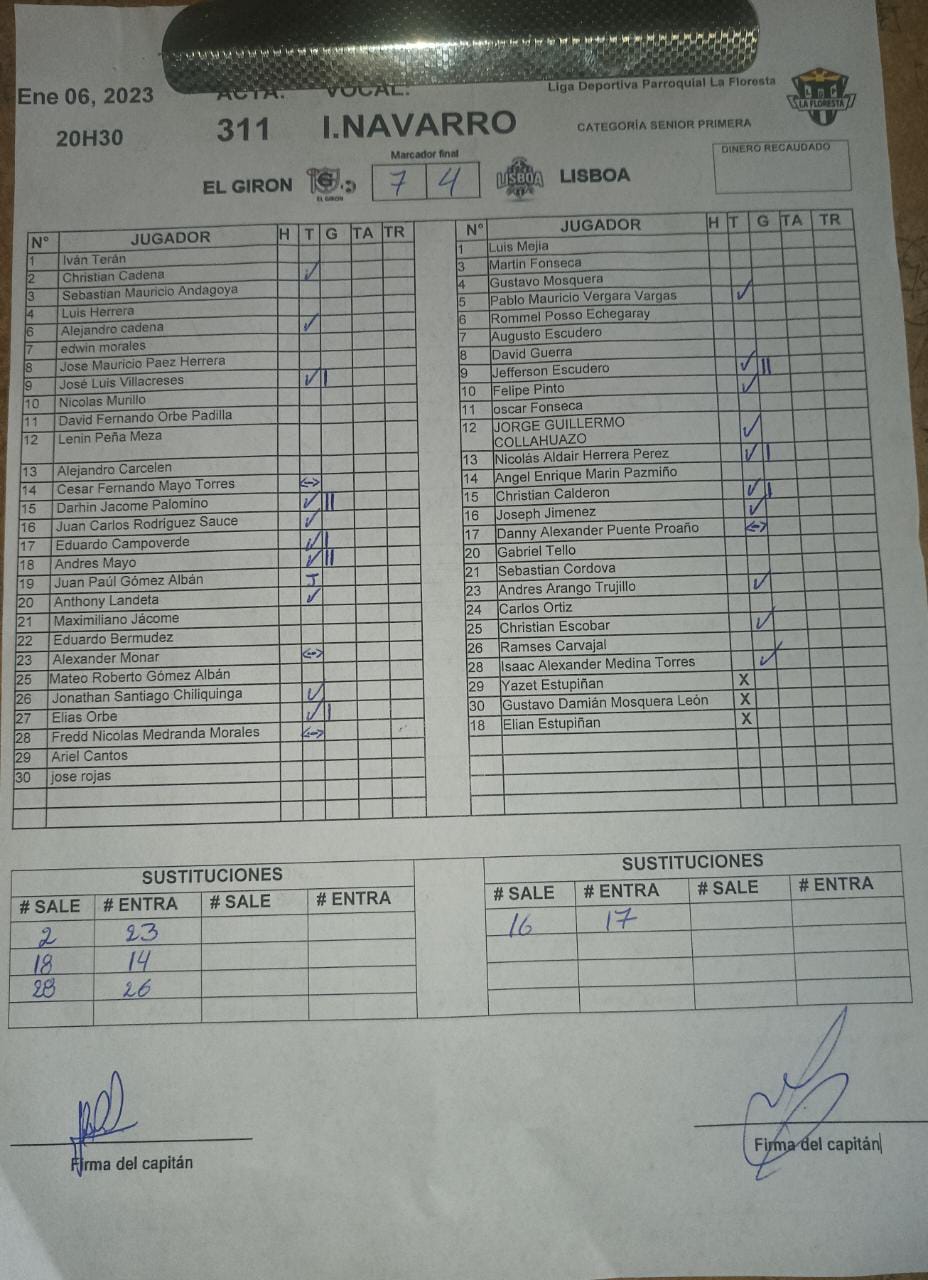 Liga Deportiva Parroquial La Floresta
Ene 06, 2023 ACTA: VOCAL:
LA FLORESTA
20H30 311 I.NAVARRO CATEGORÍA SENIOR PRIMERA
Marcador final DINERO RECAUDADO
EL GIRON EL GIRON 7 4 LISBOA LISBOA
N° JUGADOR H T G TA TR
1 Iván Terán
2 Christian Cadena ✓
3 Sebastian Mauricio Andagoya
4 Luis Herrera
6 Alejandro cadena ✓
7 edwin morales
8 Jose Mauricio Paez Herrera
9 José Luis Villacreses ✓ |
10 Nicolas Murillo
11 David Fernando Orbe Padilla
12 Lenin Peña Meza
13 Alejandro Carcelen
14 Cesar Fernando Mayo Torres <->
15 Darhin Jacome Palomino ✓ ||
16 Juan Carlos Rodríguez Sauce ✓
17 Eduardo Campoverde ✓ |
18 Andres Mayo ✓ ||
19 Juan Paúl Gómez Albán J
20 Anthony Landeta ✓
21 Maximiliano Jácome
22 Eduardo Bermudez
23 Alexander Monar <->
25 Mateo Roberto Gómez Albán
26 Jonathan Santiago Chiliquinga ✓
27 Elias Orbe ✓ |
28 Fredd Nicolas Medranda Morales <->
29 Ariel Cantos
30 jose rojas
N° JUGADOR H T G TA TR
1 Luis Mejia
3 Martin Fonseca
4 Gustavo Mosquera
5 Pablo Mauricio Vergara Vargas ✓
6 Rommel Posso Echegaray
7 Augusto Escudero
8 David Guerra
9 Jefferson Escudero ✓ ||
10 Felipe Pinto ✓
11 oscar Fonseca
12 JORGE GUILLERMO
COLLAHUAZO ✓
13 Nicolás Aldair Herrera Perez ✓ |
14 Angel Enrique Marin Pazmiño
15 Christian Calderon ✓ |
16 Joseph Jimenez ✓
17 Danny Alexander Puente Proaño <->
20 Gabriel Tello
21 Sebastian Cordova
23 Andres Arango Trujillo ✓
24 Carlos Ortiz
25 Christian Escobar ✓
26 Ramses Carvajal
28 Isaac Alexander Medina Torres ✓
29 Yazet Estupiñan X
30 Gustavo Damián Mosquera León X
18 Elian Estupiñan X
SUSTITUCIONES
# SALE # ENTRA # SALE # ENTRA
2 23
18 14
28 26
SUSTITUCIONES
# SALE # ENTRA # SALE # ENTRA
16 17
Firma del capitán
Firma del capitán